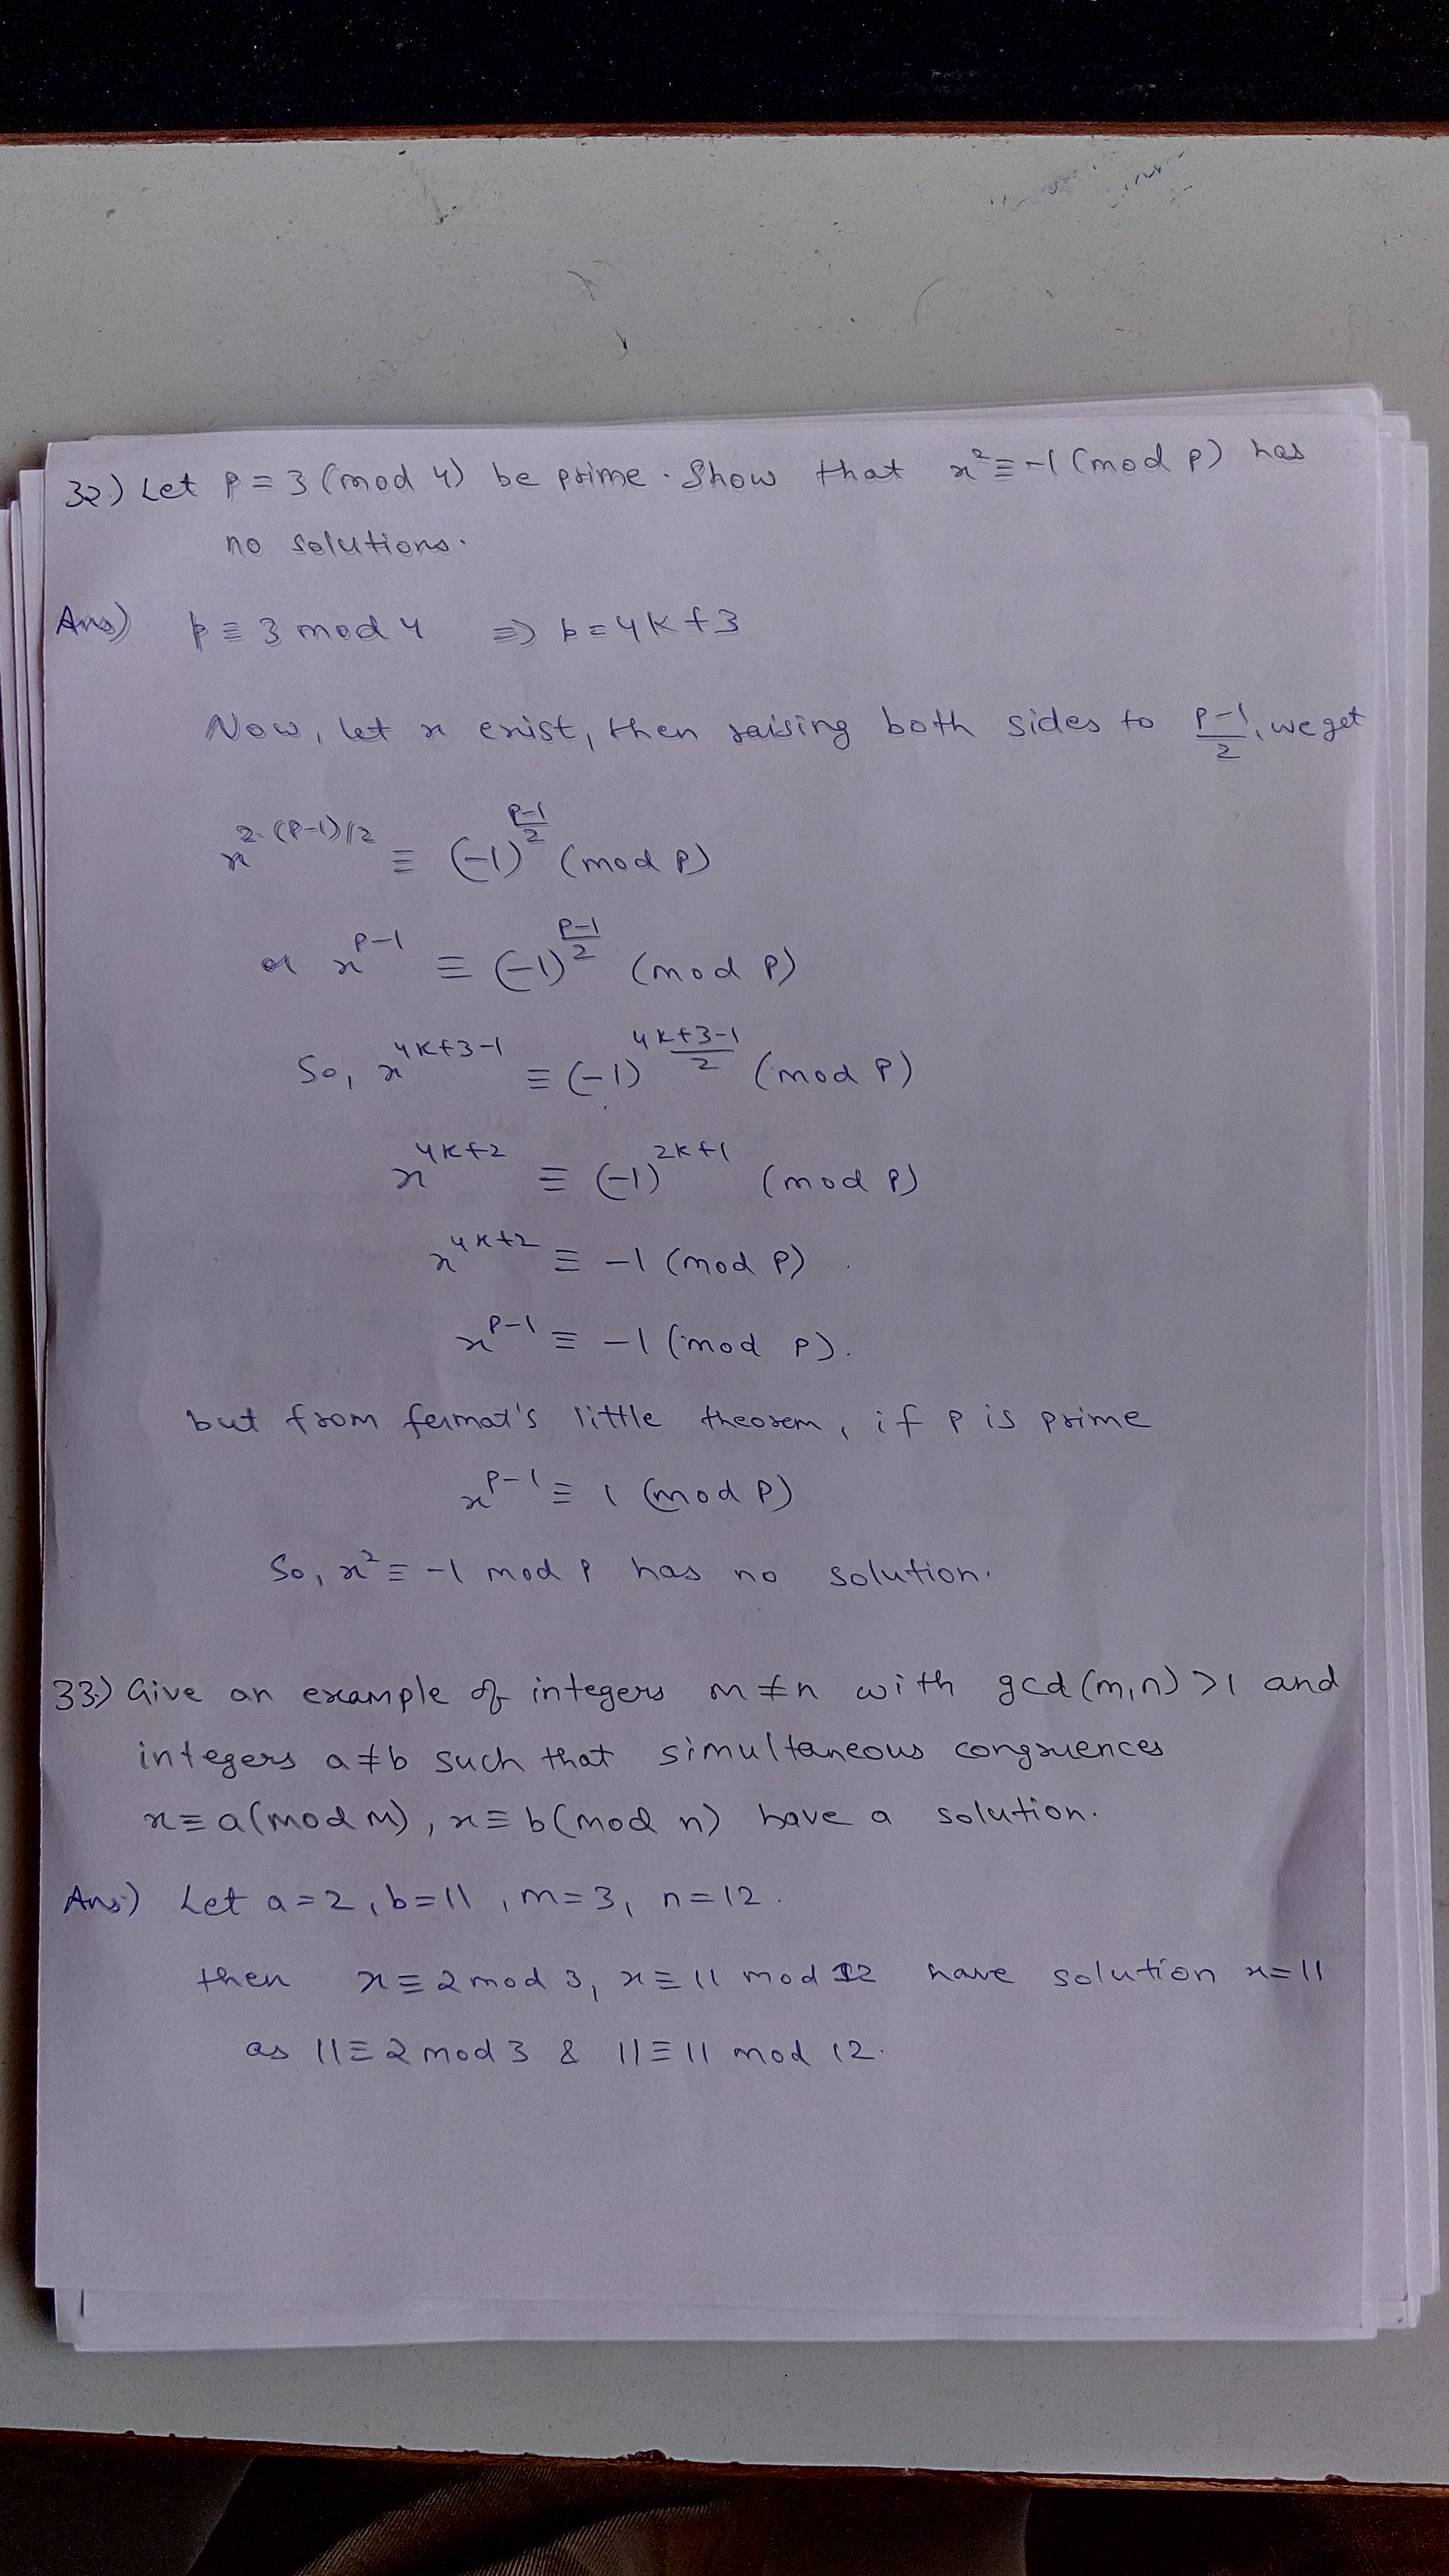 32.) Let p = 3 (mod 4) be prime. Show that x² ≡ -1 (mod p) has
no solutions.
Ans) p ≡ 3 mod 4 ⇒ p = 4k+3
Now, let x exist, then raising both sides to (p-1)/2, we get
x^{2·(p-1)/2} ≡ (-1)^{(p-1)/2} (mod p)
or x^{p-1} ≡ (-1)^{(p-1)/2} (mod p)
So, x^{4k+3-1} ≡ (-1)^{(4k+3-1)/2} (mod p)
x^{4k+2} ≡ (-1)^{2k+1} (mod p)
x^{4k+2} ≡ -1 (mod p).
x^{p-1} ≡ -1 (mod p).
but from fermat's little theorem, if p is prime
x^{p-1} ≡ 1 (mod p)
So, x² ≡ -1 mod p has no solution.
33.) Give an example of integers m ≠ n with gcd(m,n) > 1 and
integers a ≠ b such that simultaneous congruences
x ≡ a(mod m), x ≡ b(mod n) have a solution.
Ans.) Let a = 2, b = 11, m = 3, n = 12.
then x ≡ 2 mod 3, x ≡ 11 mod 12 have solution x = 11
as 11 ≡ 2 mod 3 & 11 ≡ 11 mod 12.